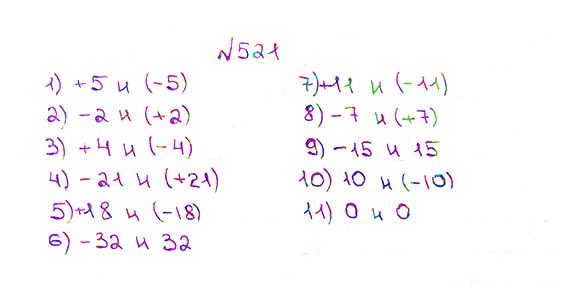 №521
1) +5 и (-5)
2) -2 и (+2)
3) +4 и (-4)
4) -21 и (+21)
5) +18 и (-18)
6) -32 и 32
7) +11 и (-11)
8) -7 и (+7)
9) -15 и 15
10) 10 и (-10)
11) 0 и 0